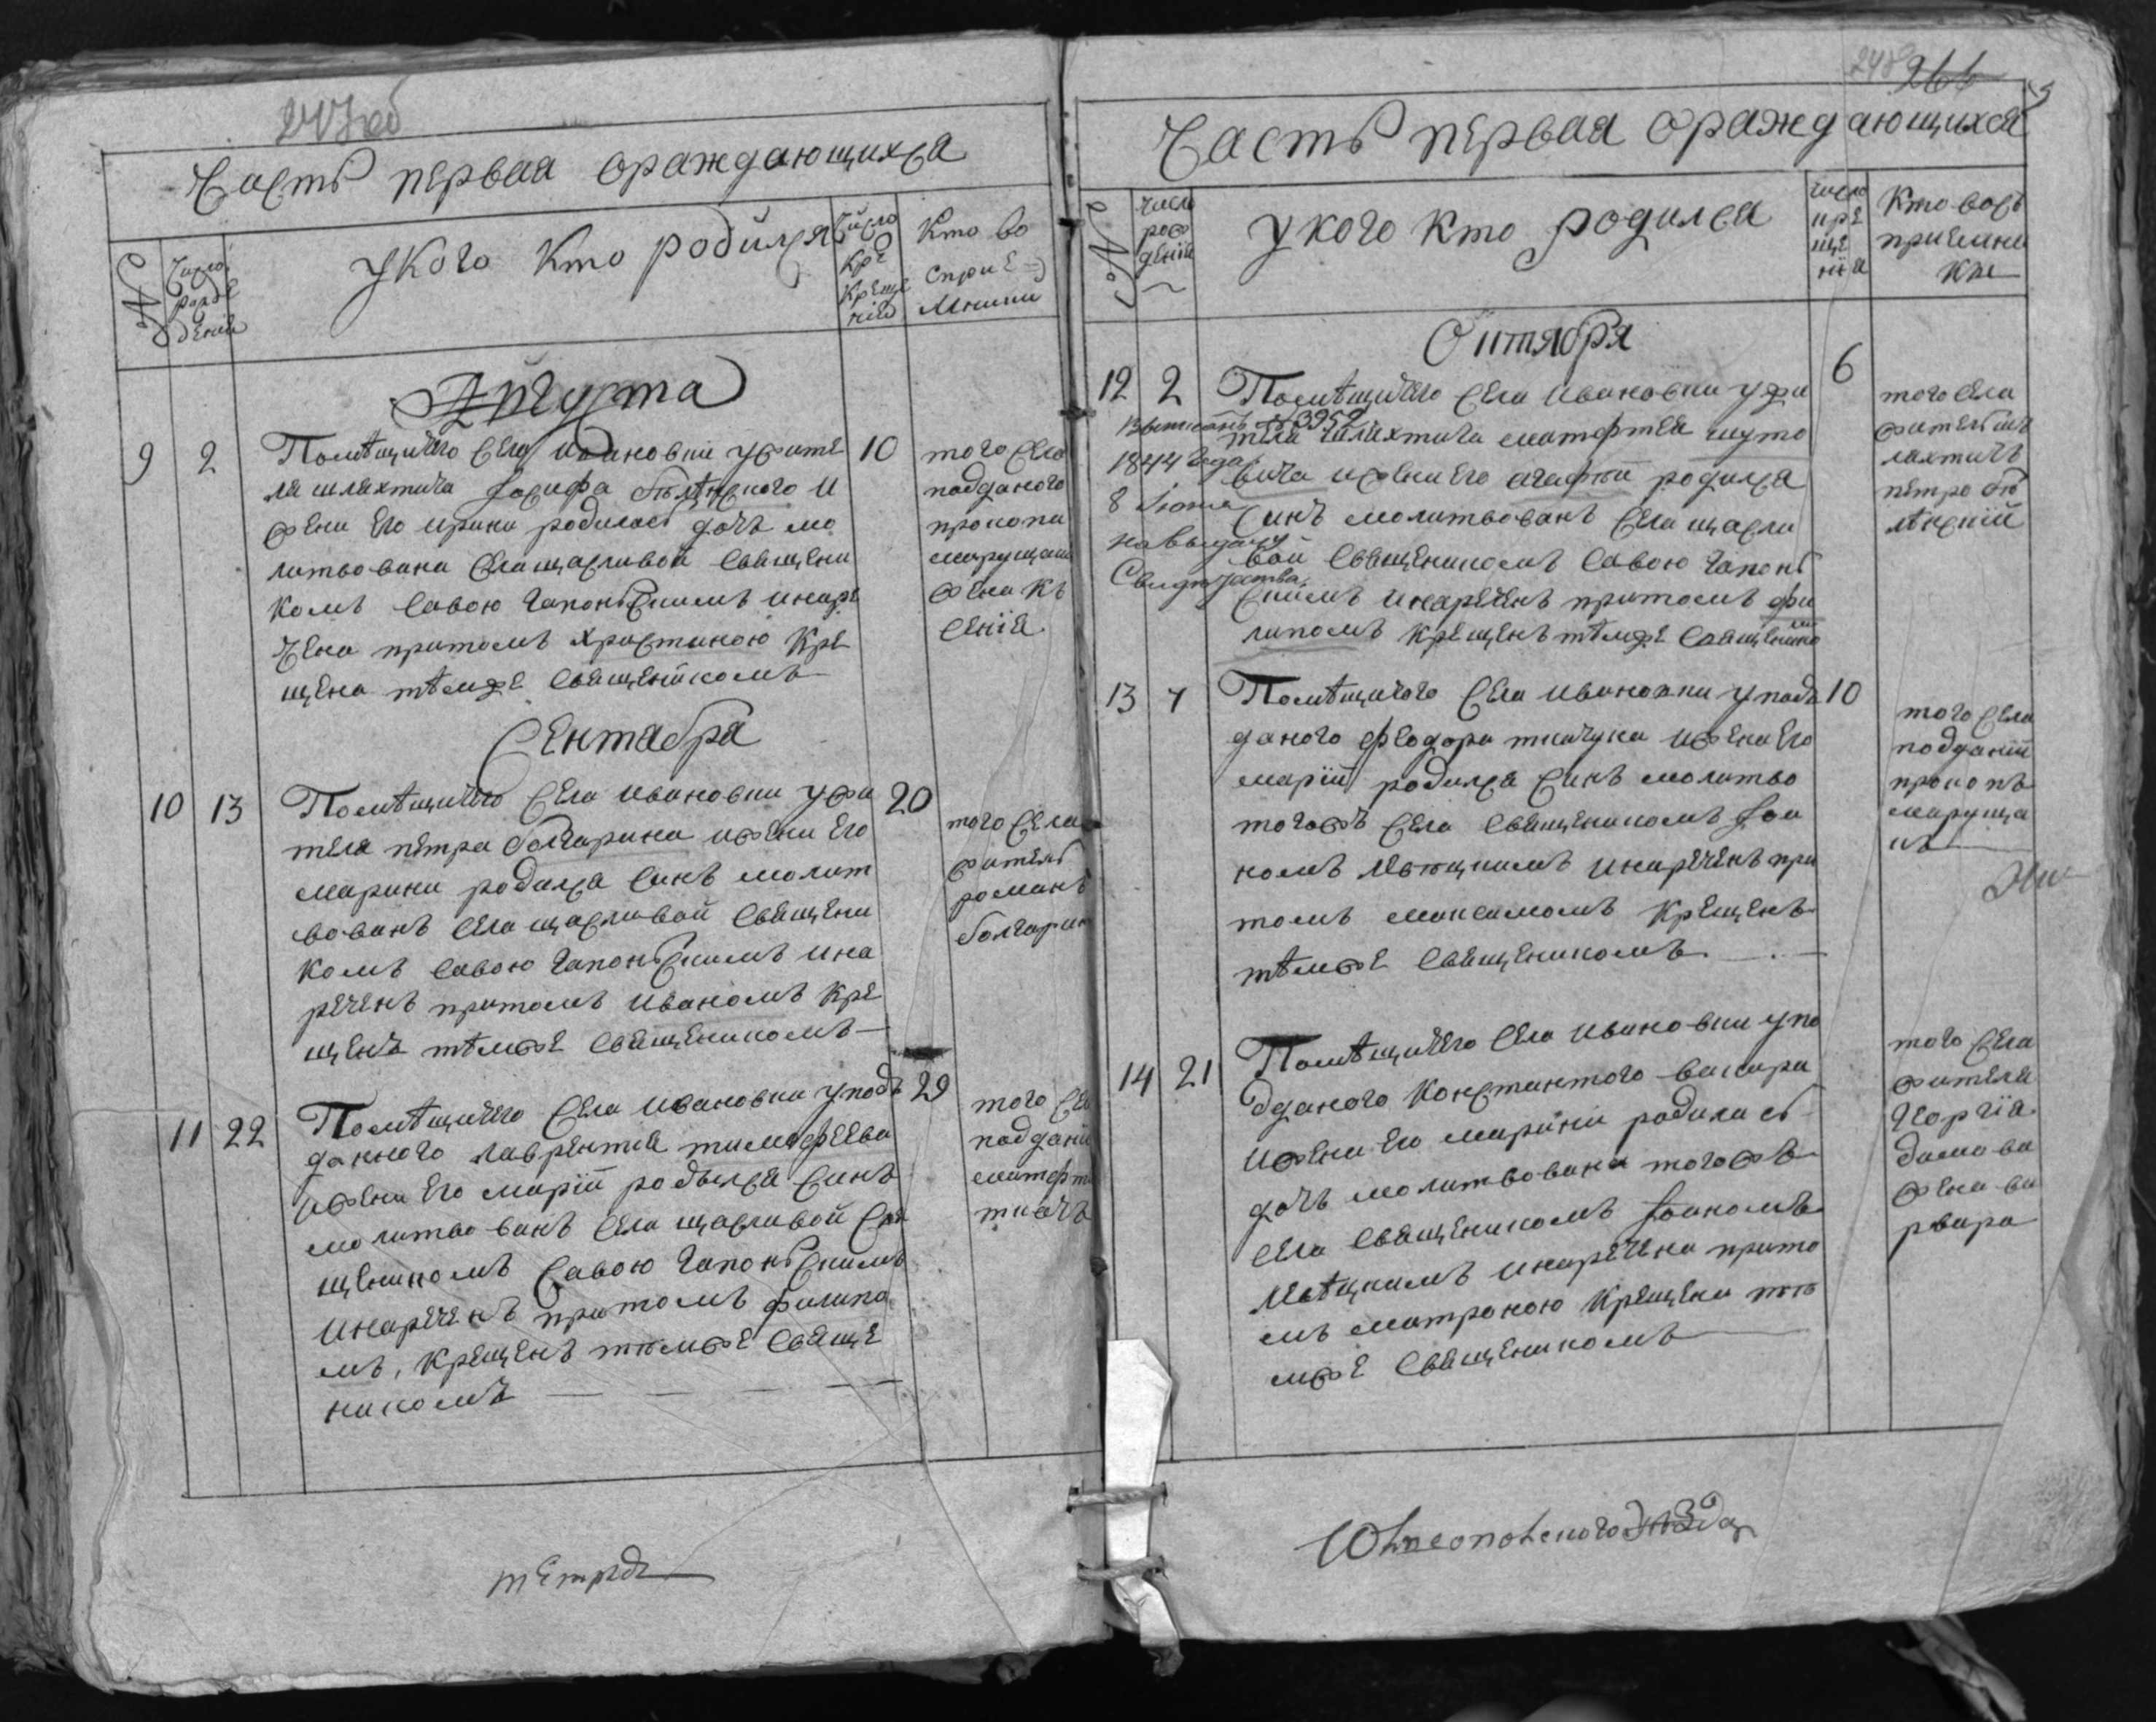 247 об
Часть первая ораждающихся
№
Число рожденія
укого кто родился
Число кре крещенія
Кто во спріемники
Августа
9 2 Помѣщичего села ивановки ужите
ля шляхтича Іосифа бѣлѣнского и
жени его ирини родилась дочъ мо
литвована села щасливой священи
комъ савою гапонбскимъ инаре
чена притомъ христиною кре
щена тѣмже священикомъ
10
того села
подданого
прокопа
марущака
жена къ
сенія
Сентября
10 13 Помѣщичего села ивановки ужи
теля петра болгарина ижени его
марини родился синъ молит
вованъ села щасливой священи
комъ савою гапонбскимъ ина
реченъ притомъ иваномъ кре
щенъ тѣмже священикомъ
20
того села
житель
романъ
болгарин
11 22 Помѣщичего села ивановки уподъ
данного лаврентія тимофеева
ижени его маріи родился синъ
молитвованъ села щасливой свя
щеникомъ савою гапонбскимъ
инареченъ притомъ филипо
мъ, крещенъ тѣмже свяще
никомъ
29
того се
поддани
матфѣ
ткачъ
тетрадь
248
266
Часть первая ораждающихся
№
число рожденія
укого кто родился
число крещенія
Кто восъ приемники
Октября
12 2 Помѣщичего села ивановки ужи
теля шляхтича матфтея шуто
вича ижени его агафіи родился
синъ молитвованъ села щасли
вой священикомъ савою гапонб
скимъ инареченъ притомъ фи
липомъ крещенъ тѣмже священико
№ 3952
1844 года
8 Іюня
на выдачу
Свидѣтельства
6
того села
жительшъ
ляхтичъ
петро бѣ
лѣнскій
13 7 Помѣщичого села ивановки уподъ
даного феодора ткачука ижени его
маріи родился синъ молитво
тогожъ села священикомъ Іоа
номъ инареченъ при
томъ максимомъ крещенъ
тѣмже священикомъ
10
того села
подданій
прокопъ
маруща
къ
14 21 Помѣщичего села ивановки упо
дданого константого вакара
ижени его марини родилась
дочъ молитвована тогожъ
села священикомъ Іоаномъ
инаречена прито
мъ матроною крещена тѣ
мже священикомъ
того села
жителя
георгія
жена ва
рвара